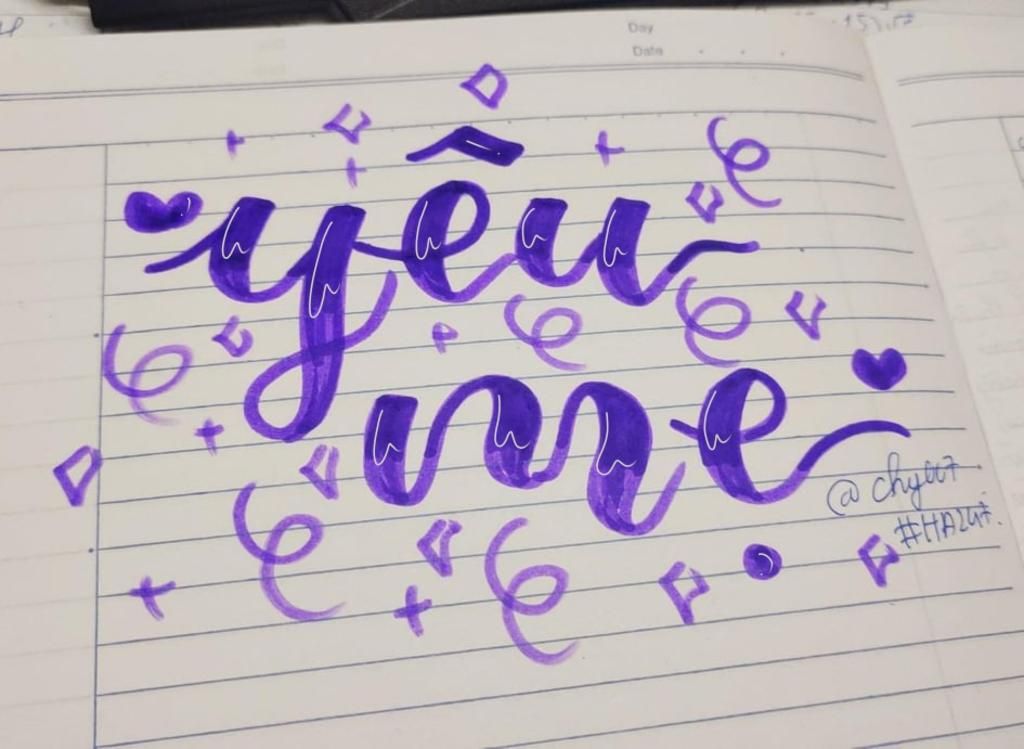 Day
Date
yêu
me
@chy007